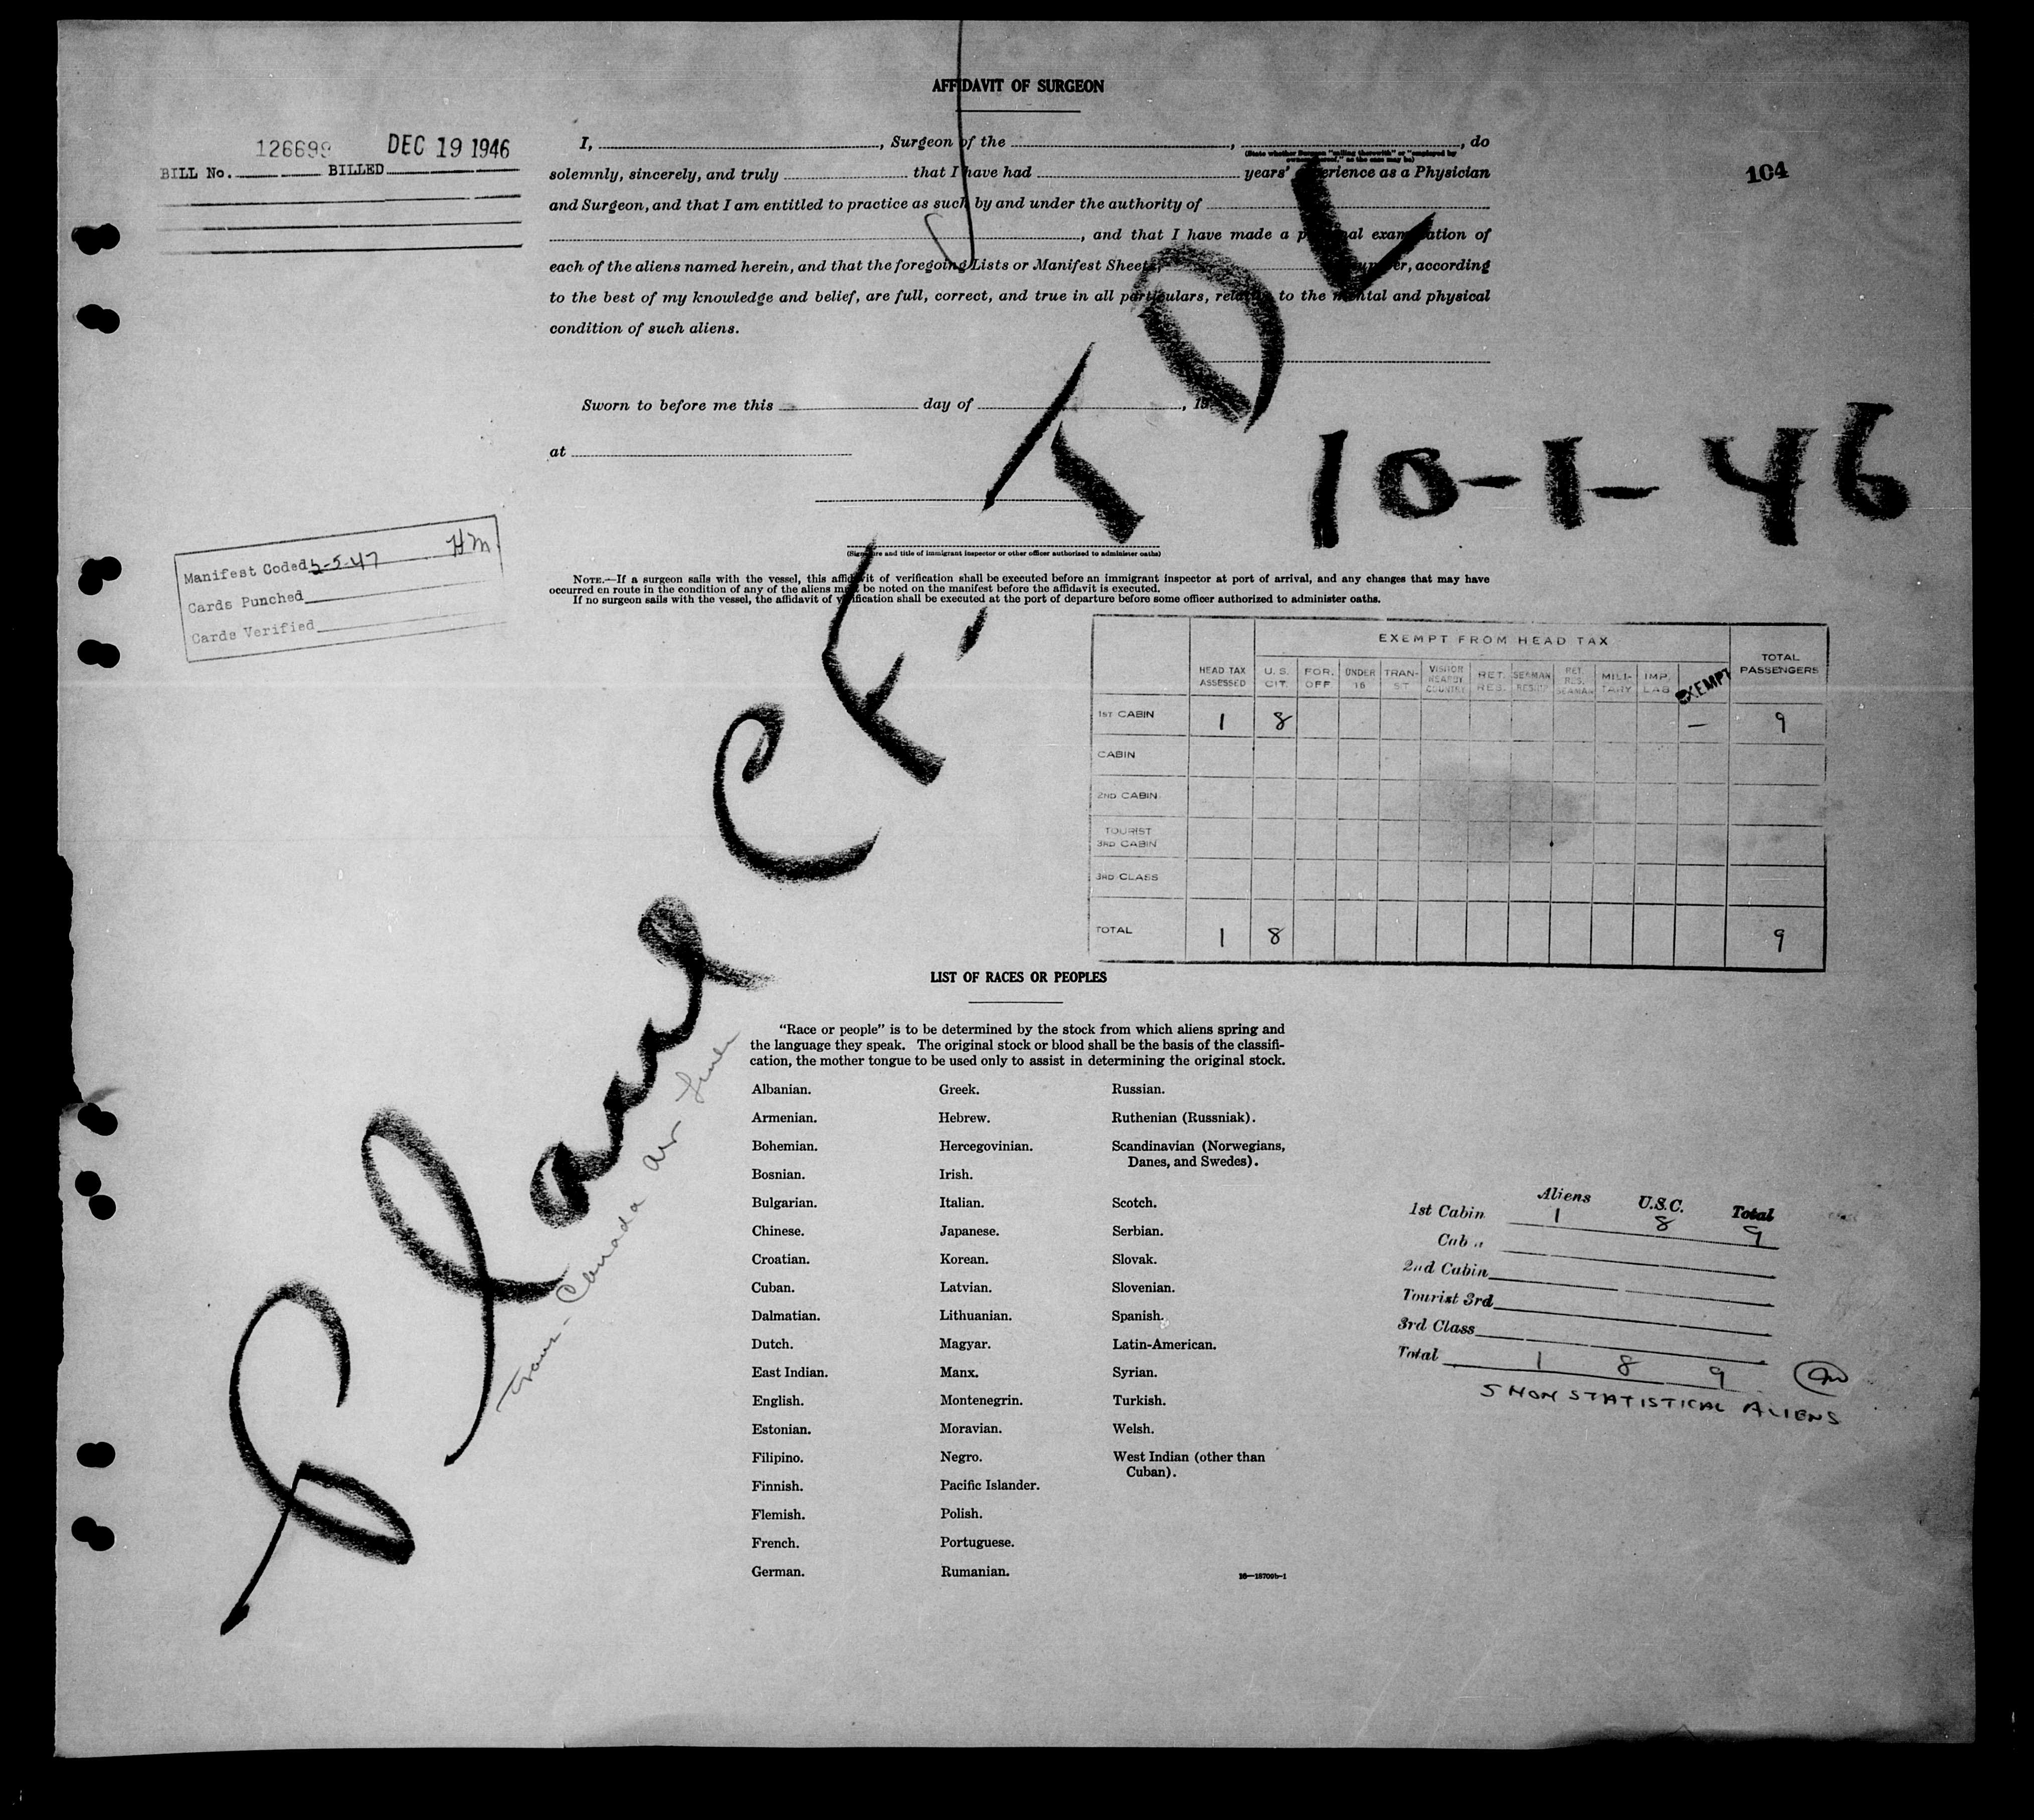 AFFIDAVIT OF SURGEON
126699 DEC 19 1946
BILL No. BILLED
104
I, , Surgeon of the , , do
(State whether Surgeon "sailing therewith" or "employed by
owners thereof," as the case may be)
solemnly, sincerely, and truly that I have had years' experience as a Physician
and Surgeon, and that I am entitled to practice as such by and under the authority of
, and that I have made a personal examination of
each of the aliens named herein, and that the foregoing Lists or Manifest Sheets, number, according
to the best of my knowledge and belief, are full, correct, and true in all particulars, relating to the mental and physical
condition of such aliens.
Sworn to before me this day of , 19
at
(Signature and title of immigrant inspector or other officer authorized to administer oaths)
NOTE.—If a surgeon sails with the vessel, this affidavit of verification shall be executed before an immigrant inspector at port of arrival, and any changes that may have
occurred en route in the condition of any of the aliens must be noted on the manifest before the affidavit is executed.
If no surgeon sails with the vessel, the affidavit of verification shall be executed at the port of departure before some officer authorized to administer oaths.
Plane CF-TDL
10-1-46
Trans-Canada Air Lines
Manifest Coded 2-5-47 HM
Cards Punched
Cards Verified
EXEMPT FROM HEAD TAX
HEAD TAX ASSESSED U. S. CIT. FOR. OFF. UNDER 16 TRAN- ST VISITOR NEARBY COUNTRY RET. RES. SEAMAN RET. RES. SEAMAN MILI- TARY IMP. LAB EXEMPT TOTAL PASSENGERS
1ST CABIN 1 8 — 9
CABIN
2ND CABIN
TOURIST
3RD CABIN
3RD CLASS
TOTAL 1 8 9
LIST OF RACES OR PEOPLES
"Race or people" is to be determined by the stock from which aliens spring and
the language they speak. The original stock or blood shall be the basis of the classifi-
cation, the mother tongue to be used only to assist in determining the original stock.
Albanian. Greek. Russian.
Armenian. Hebrew. Ruthenian (Russniak).
Bohemian. Hercegovinian. Scandinavian (Norwegians,
Danes, and Swedes).
Bosnian. Irish.
Bulgarian. Italian. Scotch.
Chinese. Japanese. Serbian.
Croatian. Korean. Slovak.
Cuban. Latvian. Slovenian.
Dalmatian. Lithuanian. Spanish.
Dutch. Magyar. Latin-American.
East Indian. Manx. Syrian.
English. Montenegrin. Turkish.
Estonian. Moravian. Welsh.
Filipino. Negro. West Indian (other than
Cuban).
Finnish. Pacific Islander.
Flemish. Polish.
French. Portuguese.
German. Rumanian.
16—18709b-1
Aliens U.S.C. Total
1st Cabin 1 8 9
Cabin
2nd Cabin
Tourist 3rd
3rd Class
Total 1 8 9
5 NON STATISTICAL ALIENS